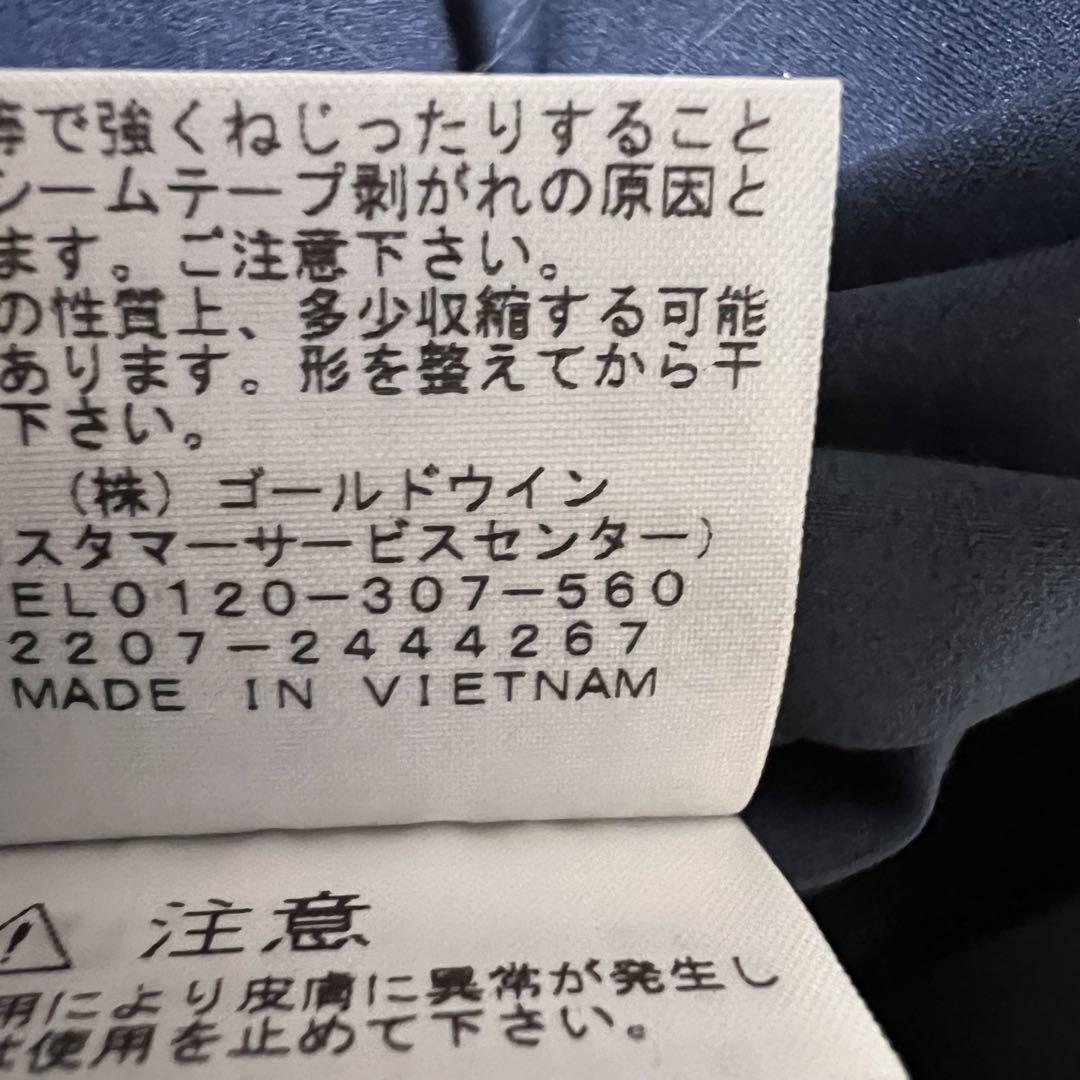 等で強くねじったりすること
シームテープ剥がれの原因と
ます。ご注意下さい。
の性質上、多少収縮する可能
あります。形を整えてから干
下さい。
(株)ゴールドウイン
スタマーサービスセンター)
EL0120-307-560
2207-2444267
MADE IN VIETNAM
注意
用により皮膚に異常が発生し
使用を止めて下さい。